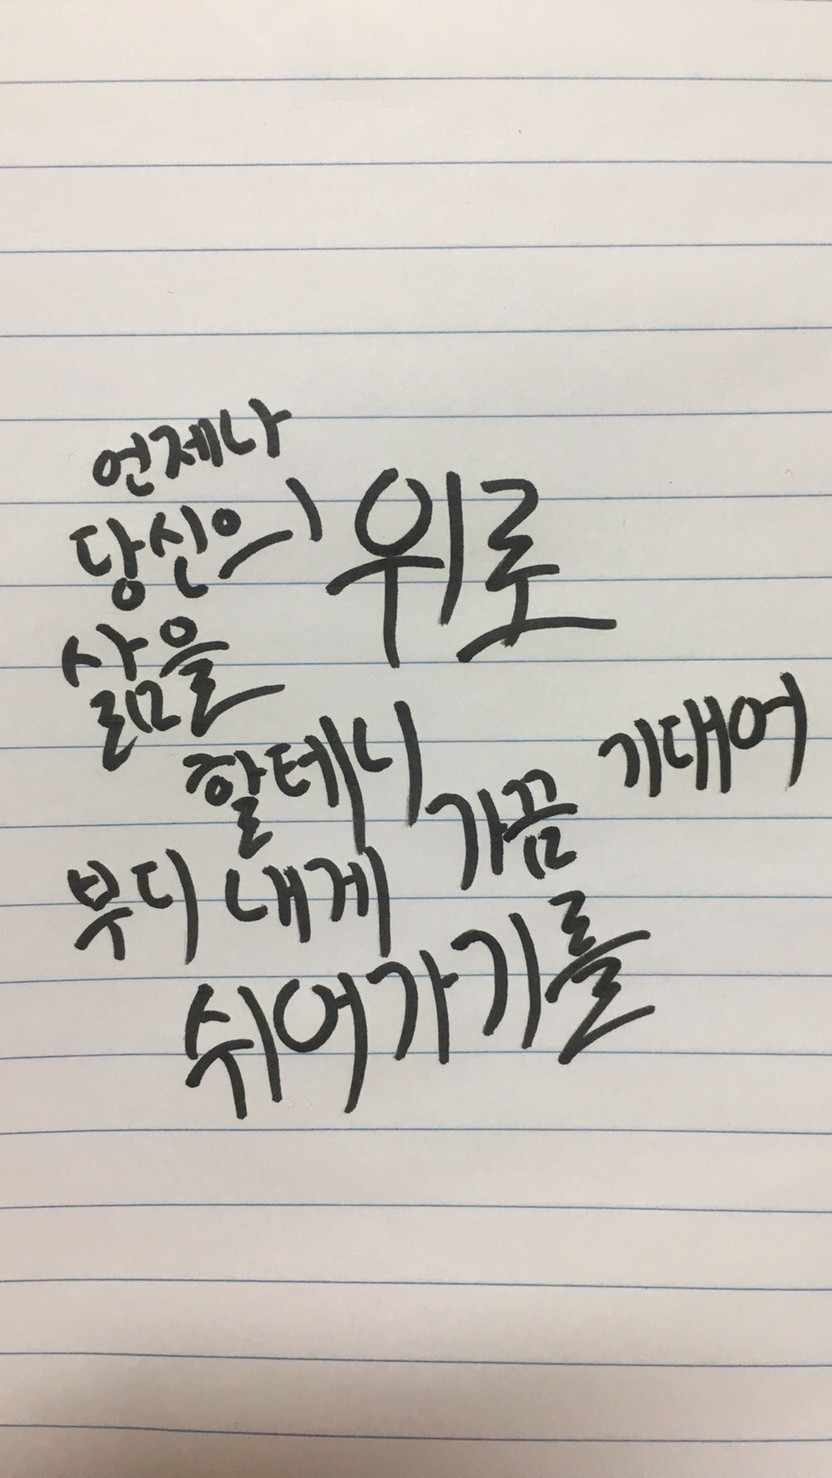 언제나
당신의 위로
삶을
할테니
가끔 기대어
부디 내게
쉬어가기를